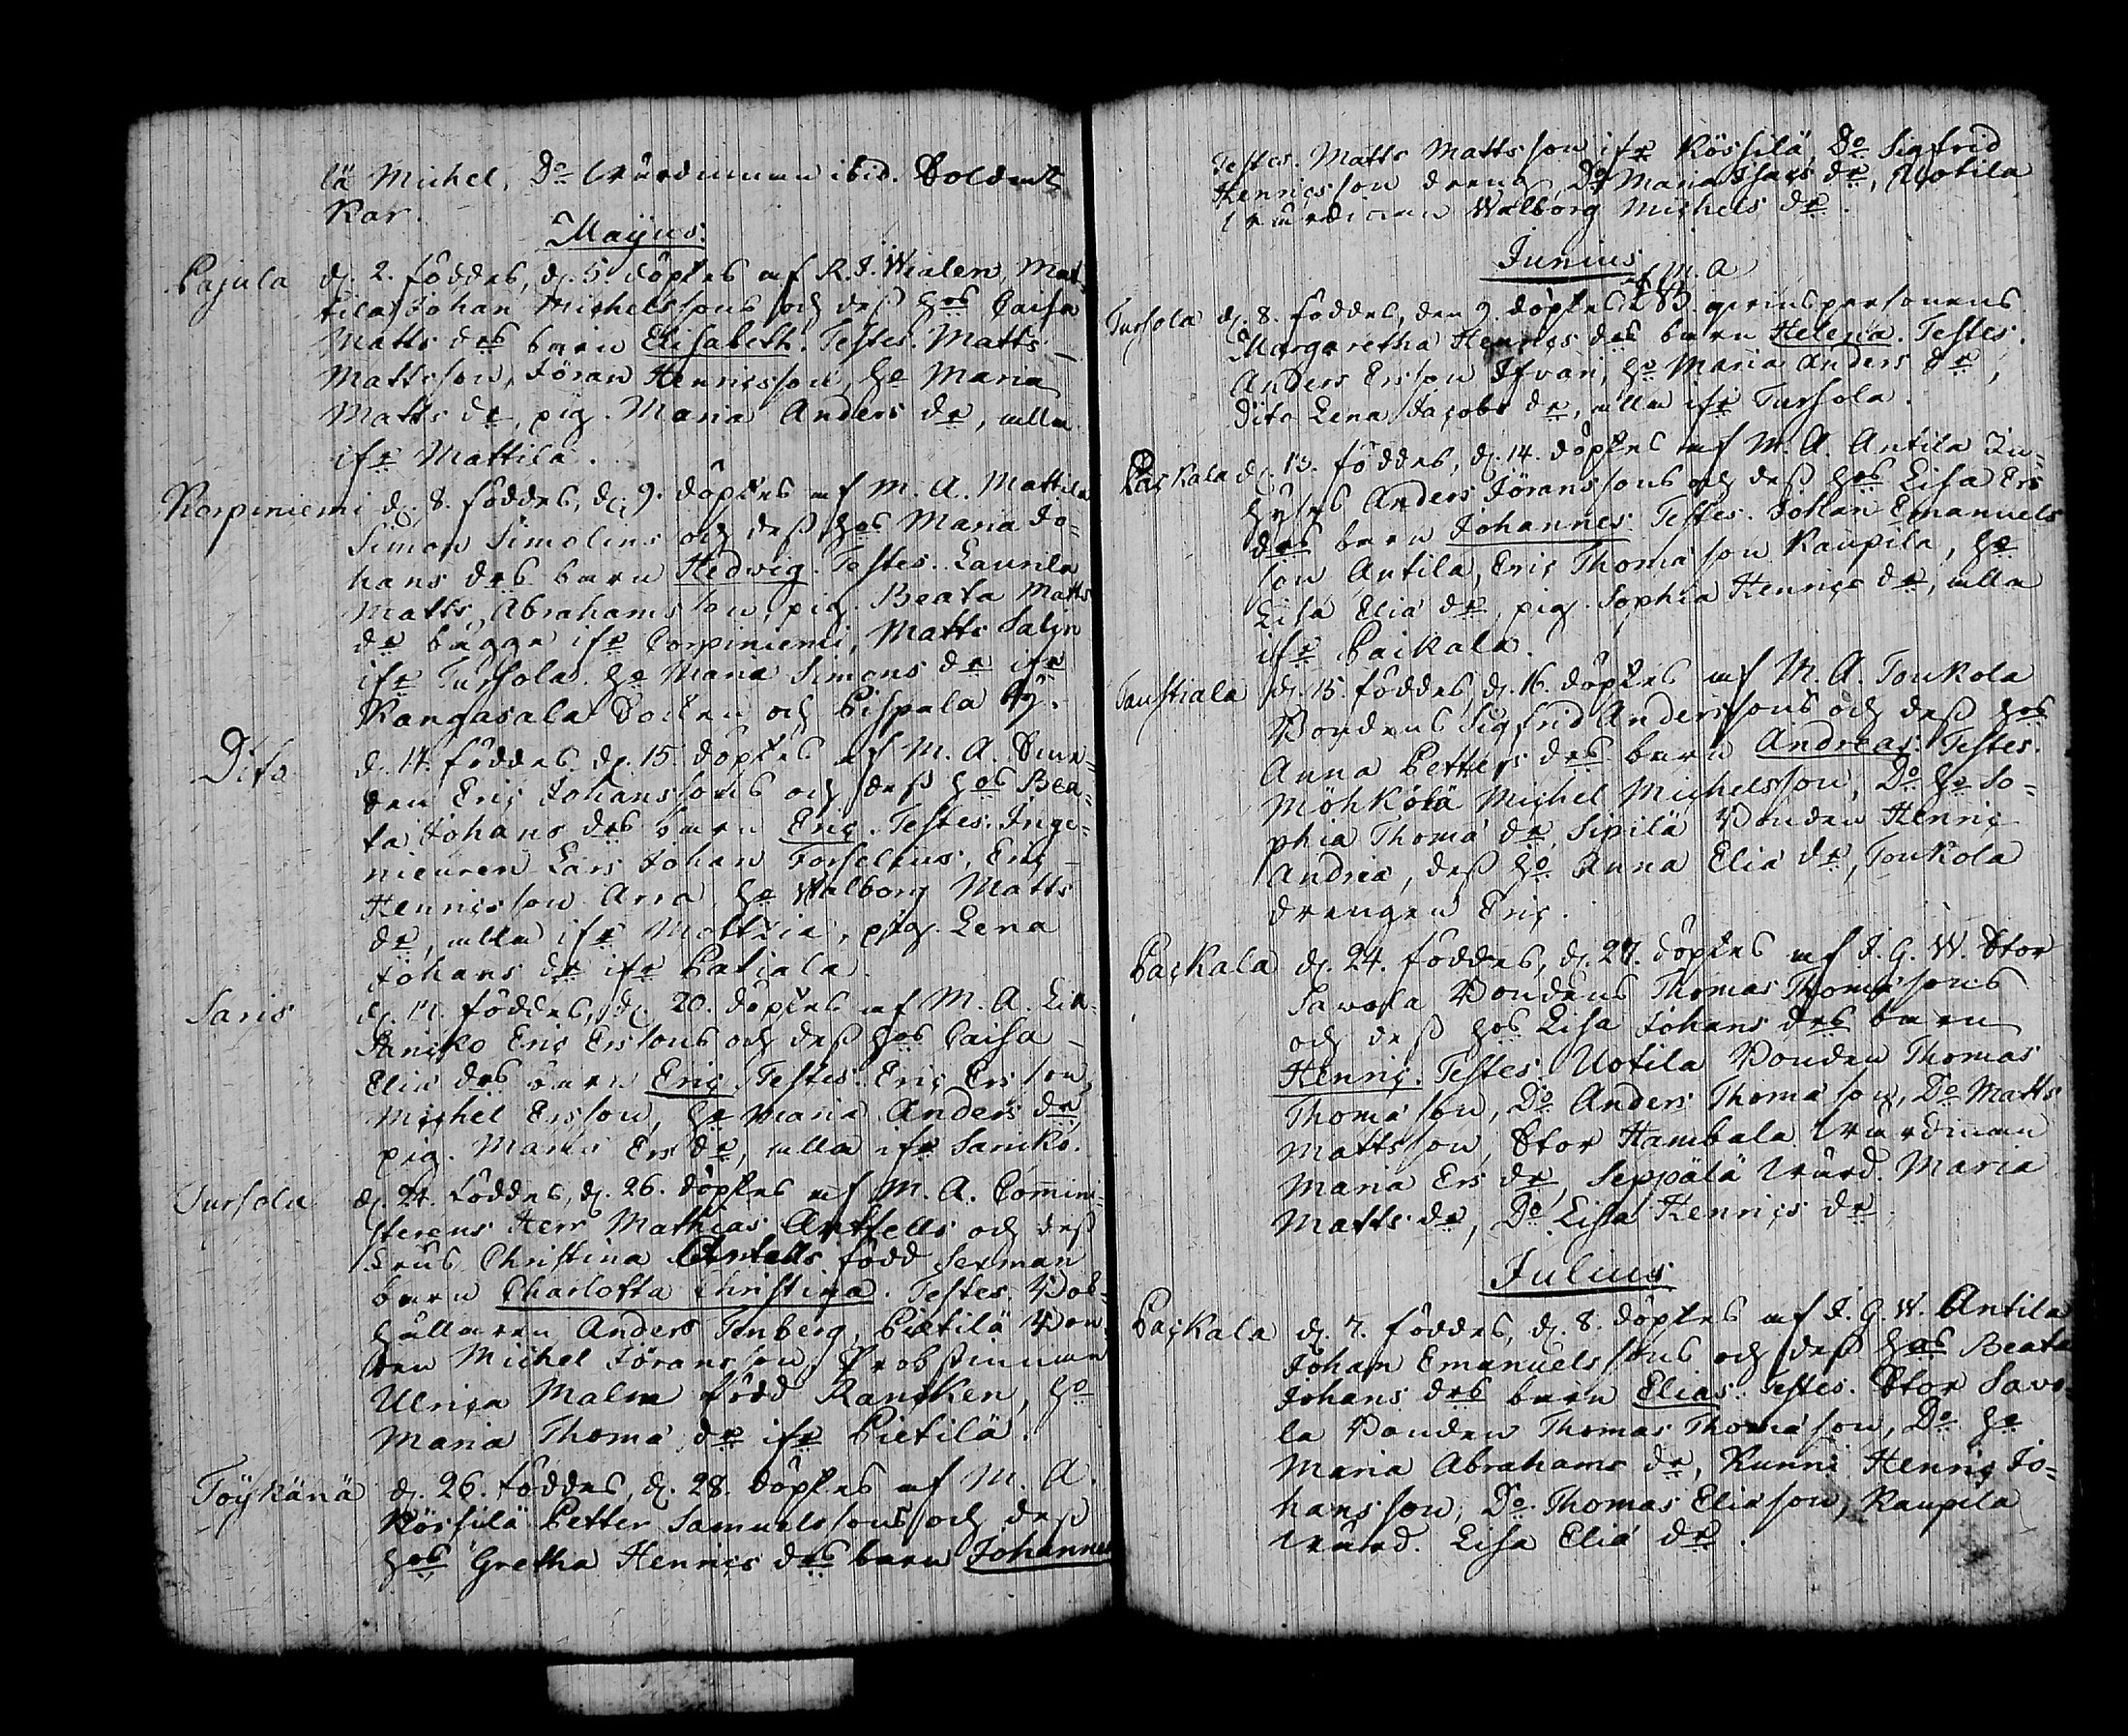 lä Michel, Do Wärdinnan ibid. Soldent
Kar.
Majus.
Pajula d. 2. föddes, d. 5. döptes af R. J. Wialen, Mat-
tila Johan Michelssons och dess hos Caisa
Matts drs barn Elisabeth. Testes. Matts
Mattsson, Jöran Henricsson, ho Maria
Matts dr, pig. Maria Anders dr, alla
ifr Mattila.
Korpiniemi d. 8. föddes, d. 9. döptes af M. A. Mattila
Simon Simolins och dess hos Maria Jo-
hans drs barn Hedvig. Testes. Laurila
Matts Abrahamsson, pig. Beata Matts
dr bägge ifr Corpiniemi, Matts Salin
ifr Tursola, ho Maria Simons dr ifr
Kangasala Socken och Pispala By.
Dito d. 14. föddes, d. 15. döptes af M. A.
den Eric Johanssons och dess hos Bea-
ta Johans drs barn Eric. Testes. Inge-
nieuren Lars Johan Forselius, Eric
Henricsson Arra, ho Walborg Matts
dr, alla ifr, pig. Lena
Johans dr ifr Patiala.
Saris d. 17. föddes, d. 20. döptes af M. A.
Eric Erssons och dess hos Caisa
Elia drs barn Eric. Testes. Eric Ersson,
Michel Ersson, ho Maria Anders dr,
pig. Maria Ers dr, alla ifr Saricko.
Tursola d. 24. föddes, d. 26. döptes af M. A. Commini-
sterens Herr Mathias Antells och dess
Frus Christina Antells född Serman
barn Charlotta Christina. Testes. Bok-
hållaren Anders Tenberg, Pietilä Bon-
den Michel Jöransson, Probstinnan
Ulrica Malm född Rancken, ho
Maria Thoma dr ifr Pietilä.
Töykänä d. 26. föddes, d. 28. döptes af M. A.
Kössilä Petter Samuelssons och dess
hos Gretha Henrics drs barn Johannes
Testes. Matts Mattsson ifr Kössilä, Do Sigfrid
Henricsson dreng, Do Maria Isacs dr, Uotila
Wärdinnan Walborg Michels dr.
Junius
af M. A
Tursola d. 8. föddes, den 9. döptes qvinspersonens
Margaretha Henrics drs barn Helena. Testes.
Anders Ersson Ifvari, ho Maria Anders dr,
Dito Lena Jacobs dr, alla ifr Tursola.
Packala d. 13. föddes, d. 14. döptes af M. A. Antila In-
hyses Anders Jöranssons och dess hos Lisa Ers
drs barn Johannes. Testes. Johan Emanuels
son Antila, Eric Thomasson Kaupila, ho
Lisa Elia dr, pig. Sophia Henrics dr, alla
ifr Packala.
Taustiala d. 15. föddes, d. 16. döptes af M. A. Toukola
Bondens Sigfrid Anderssons och dess hos
Anna Petters drs barn Andreas. Testes.
Möhkölä Michel Michelsson, Do ho So-
phia Thoma dr, Sipilä Bonden Henric
Andrea, dess ho Anna Elia dr, Toukola
drengen Eric.
Packala d. 24. föddes, d. 27. döptes af J. G. W. Stor
Savola Bondens Thomas Thomassons
och dess hos Lisa Johans drs barn
Henric. Testes. Uotila Bonden Thomas
Thomasson, Do Anders Thomasson, Do Matts
Mattsson, Stor Hambala Wärdinnan
Maria Ers dr, Seppälä Wärd. Maria
Matts dr, Do Lisa Henrics dr.
Julius
Packala d. 7. föddes, d. 8. döptes af J. G. W. Antila
Johan Emanuelssons och dess hos Beata
Johans drs barn Elias. Testes. Stor Savo-
la Bonden Thomas Thomasson, Do ho
Maria Abrahams dr, Runni Henric Jo-
hansson, Do Thomas Eliasson, Kaupila
Wärd. Lisa Elia dr.